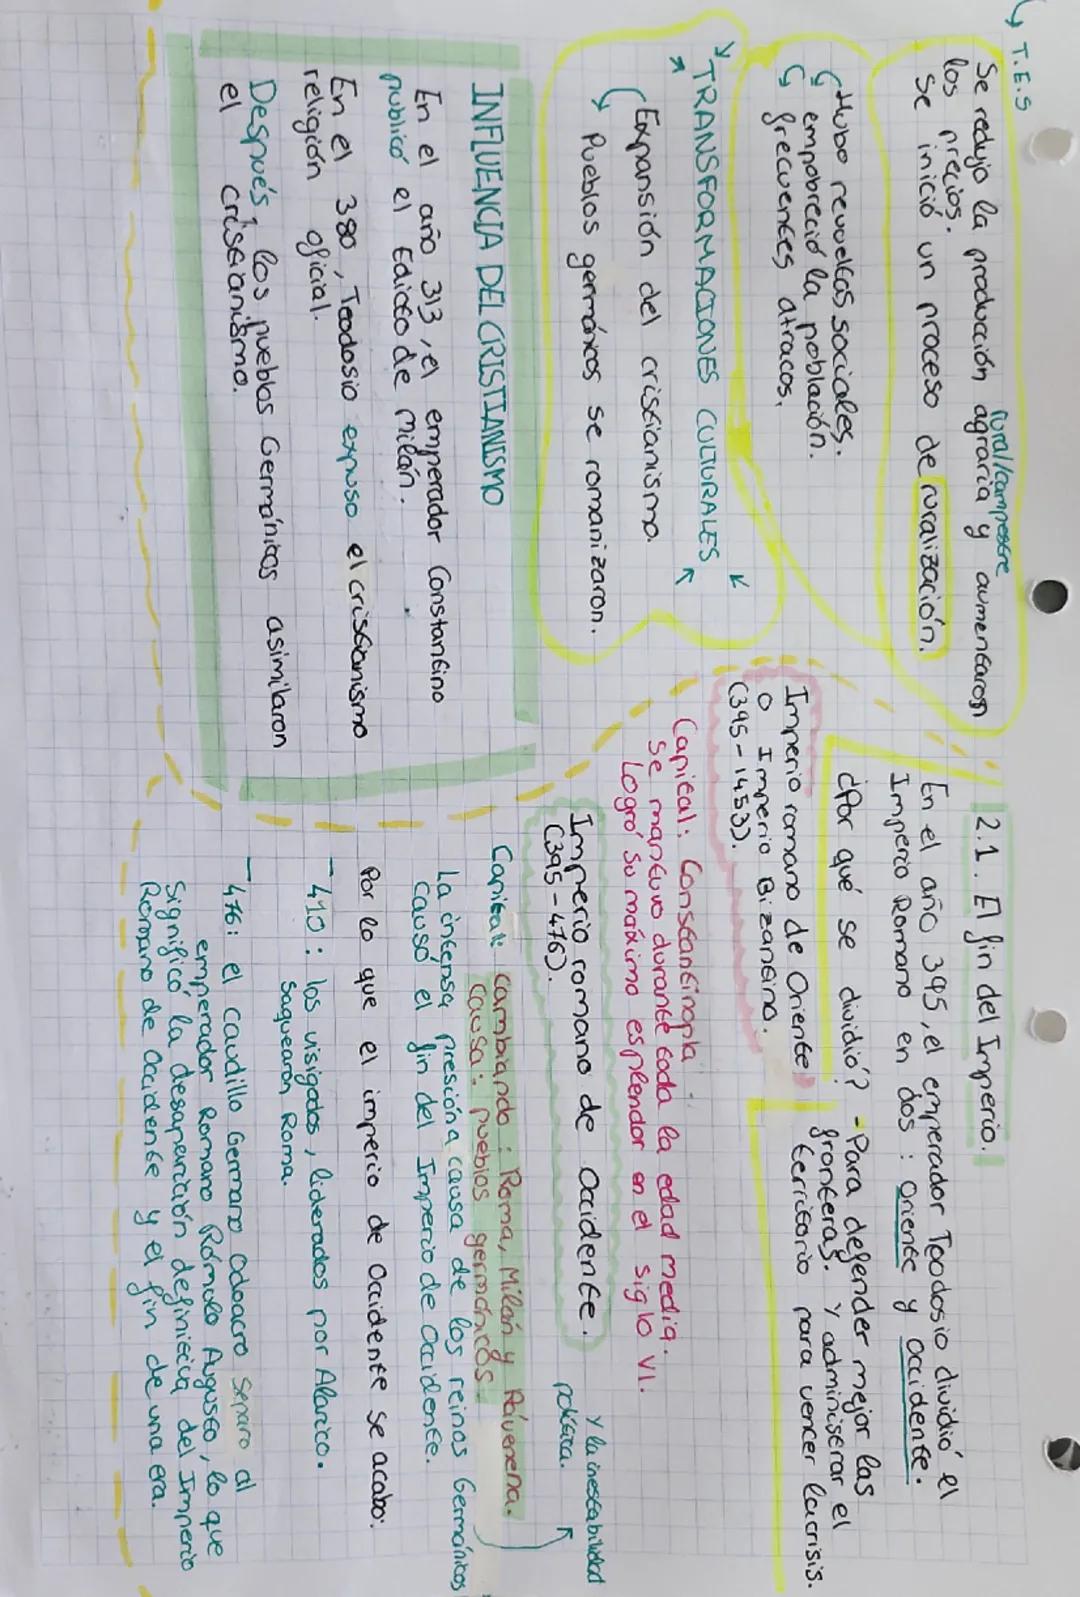 T.E.S
rural/campestre
Se redujo la producción agraria y aumentaron
los precios.
Se inició un proceso de ruralización.
Hubo revueltas sociales.
empobreció la población.
frecuentes atracos.
TRANSFORMACIONES CULTURALES
Expansión del cristianismo.
Pueblos germánicos se romanizaron.
INFLUENCIA DEL CRISTIANISMO
En el año 313, el emperador Constantino
publicó el Edicto de milán.
En el 380, Teodosio expuso el cristianismo
religión oficial.
Después, los pueblos Germánicos asimilaron
el cristianismo.
2.1. El fin del Imperio.
En el año 395, el emperador Teodosio dividió el
Imperio Romano en dos: oriente y occidente.
¿Por qué se dividió? - Para defender mejor las
fronteras. Y administrar el
territorio para vencer la crisis.
Imperio romano de Oriente
o Imperio Bizantino.
(395-1453).
Capital: Constantinopla.
Se mantuvo durante toda la edad media.
Logró su máximo esplendor en el siglo VI.
Imperio romano de occidente.
(395-476).
Y la inestabilidad
política.
Capital: cambiando: Roma, Milán y Rávenena.
Causa: pueblos germánicos
La intensa presión a causa de los reinos Germánicos
causó el fin del Imperio de Occidente.
Por lo que el imperio de Occidente se acabo:
- 410: los visigodos, liderados por Alarico.
saquearon Roma.
- 476: el caudillo Germano Odoacro separo al
emperador Romano Rómulo Augusto, lo que
Significó la desaparición definitiva del Imperio
Romano de Occidente y el fin de una era.